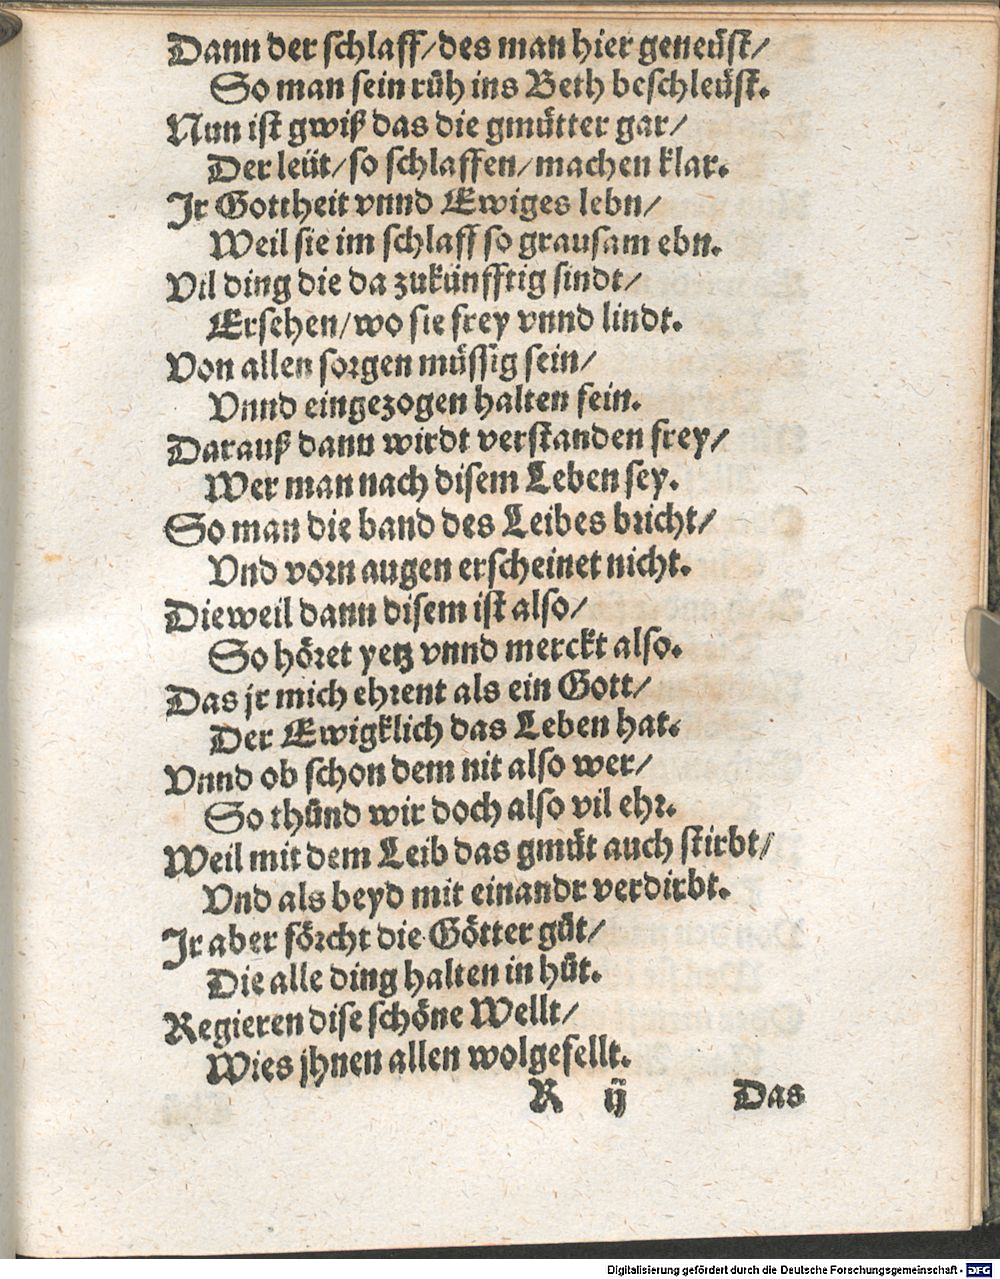 Dann der schlaff/des man hier geneüst/
So man sein růh ins Beth beschleüst.
Nun ist gwiß das die gmütter gar/
Der leüt/so schlaffen/machen klar.
Jr Gottheit vnnd Ewiges lebn/
Weil sie im schlaff so grausam ebn.
Vil ding die da zukünfftig sindt/
Ersehen/wo sie frey vnnd lindt.
Von allen sorgen müssig sein/
Vnnd eingezogen halten fein.
Darauß dann wirdt verstanden frey/
Wer man nach disem Leben sey.
So man die band des Leibes bricht/
Vnd vorn augen erscheinet nicht.
Dieweil dann disem ist also/
So höret yetz vnnd merckt also.
Das jr mich ehrent als ein Gott/
Der Ewigklich das Leben hat.
Vnnd ob schon dem nit also wer/
So thůnd wir doch also vil ehr.
Weil mit dem Leib das gmüt auch stirbt/
Vnd als beyd mit einandr verdirbt.
Jr aber förcht die Götter gůt/
Die alle ding halten in hůt.
Regieren dise schöne Wellt/
Wies jhnen allen wolgefellt.
R ij Das
Digitalisierung gefördert durch die Deutsche Forschungsgemeinschaft - DFG